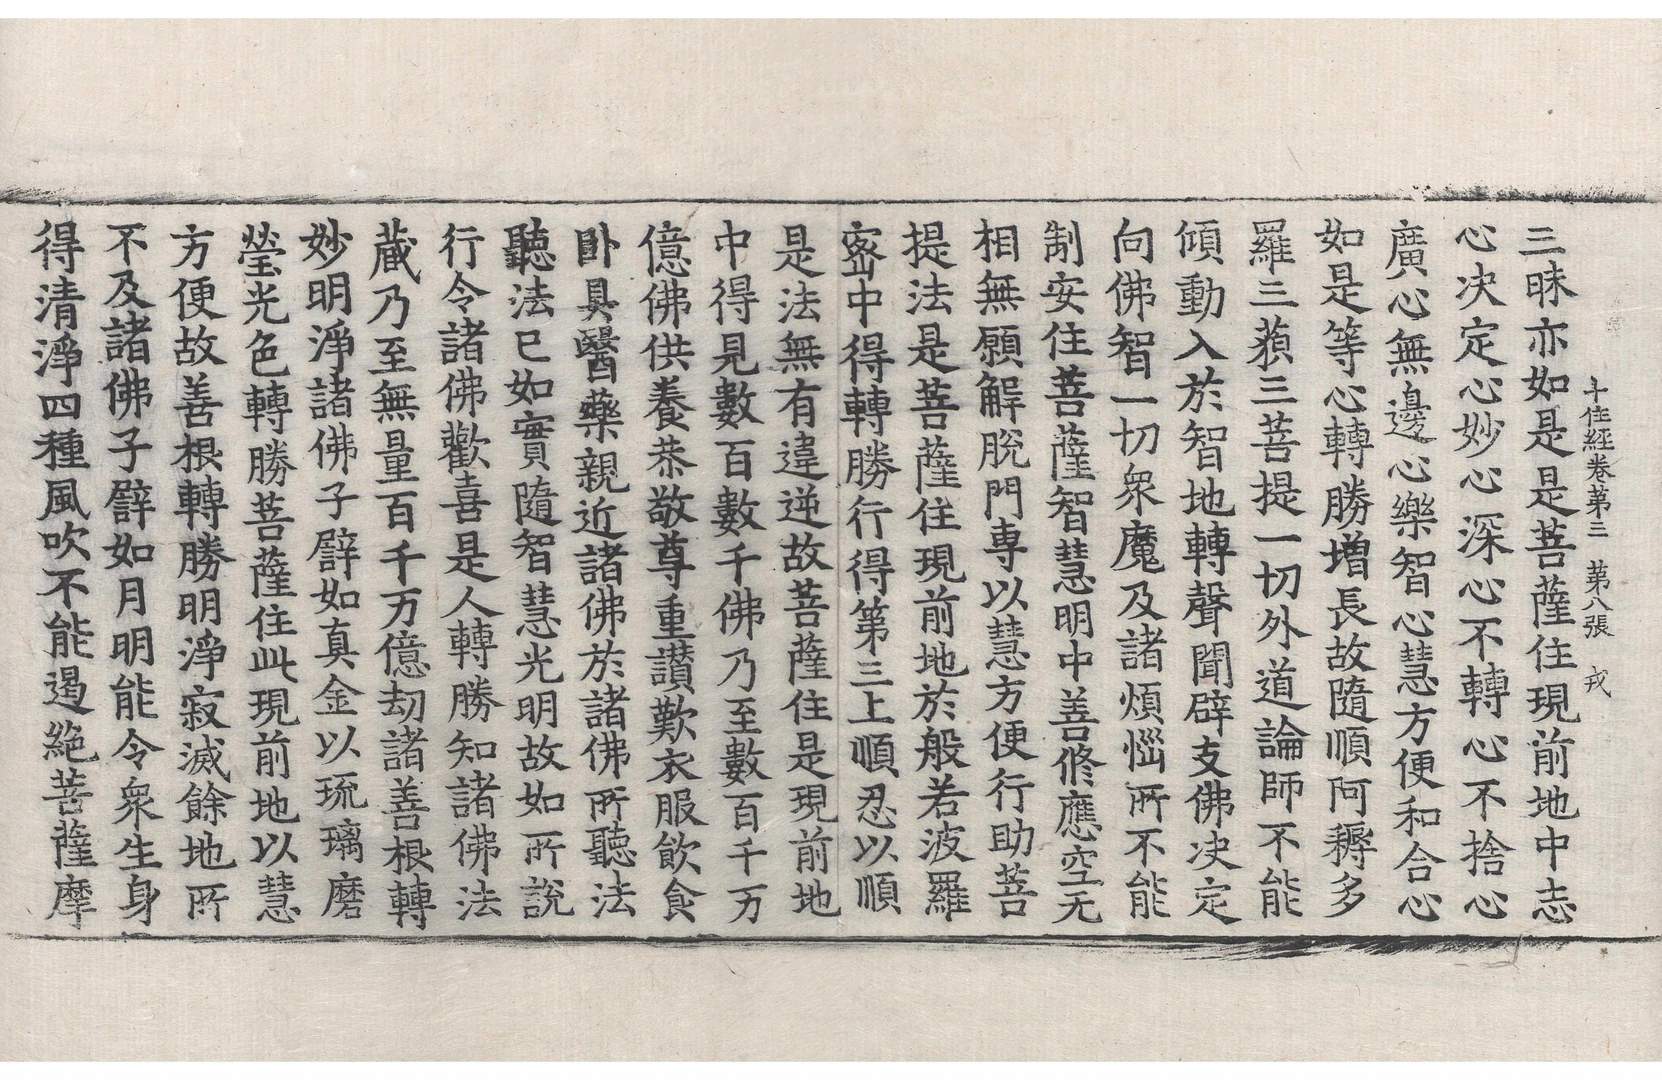 十住經卷第三　第八張　戎
三昧亦如是是菩薩住現前地中志
心决定心妙心深心不轉心不捨心
廣心無邊心樂智心慧方便和合心
如是等心轉勝增長故隨順阿耨多
羅三藐三菩提一切外道論師不能
傾動入於智地轉聲聞辟支佛决定
向佛智一切衆魔及諸煩惱所不能
制安住菩薩智慧明中善修應空无
相無願解脫門専以慧方便行助菩
提法是菩薩住現前地於般若波羅
宻中得轉勝行得第三上順忍以順
是法無有違逆故菩薩住是現前地
中得見數百數千佛乃至數百千万
億佛供養恭敬尊重讃歎衣服飲食
卧具醫藥親近諸佛於諸佛所聽法
聽法已如實隨智慧光明故如所説
行令諸佛歡喜是人轉勝知諸佛法
蔵乃至無量百千万億劫諸善根轉
妙明淨諸佛子譬如真金以琉璃磨
瑩光色轉勝菩薩住此現前地以慧
方便故善根轉勝明淨寂滅餘地所
不及諸佛子譬如月明能令衆生身
得清淨四種風吹不能遏絶菩薩摩